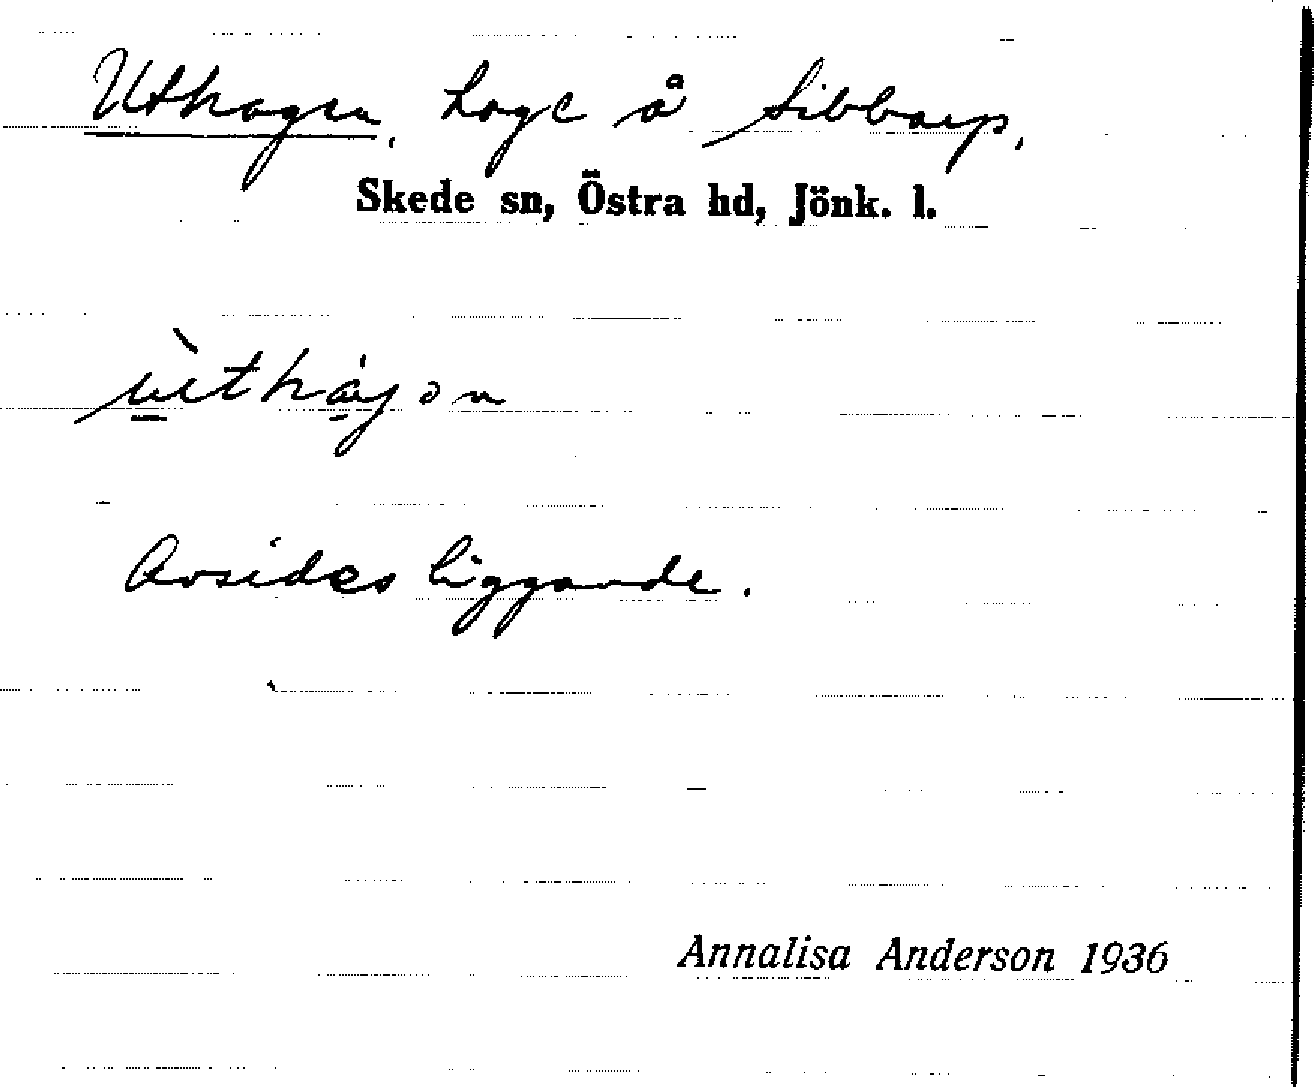 Uthagen, Loge å Sibbarp,
Skede sn, Östra hd, Jönk. l.
Avsides liggande.
Annalisa Anderson 1936